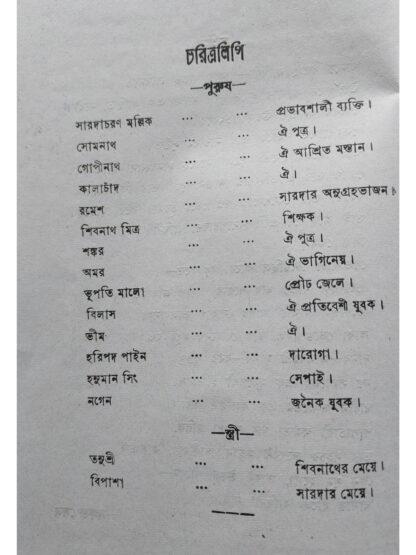 চরিত্রলিপি
—পুরুষ—
সারদাচরণ মল্লিক ... ... প্রভাবশালী ব্যক্তি।
সোমনাথ ... ... ঐ পুত্র।
গোপীনাথ ... ... ঐ আশ্রিত মস্তান।
কালাচাঁদ ... ... ঐ।
রমেশ ... ... সারদার অনুগ্রহভাজন।
শিবনাথ মিত্র ... ... শিক্ষক।
শঙ্কর ... ... ঐ পুত্র।
অমর ... ... ঐ ভাগিনেয়।
ভূপতি মালো ... ... প্রৌঢ় জেলে।
বিলাস ... ... ঐ প্রতিবেশী যুবক।
ভীম ... ... ঐ।
হরিপদ পাইন ... ... দারোগা।
হনুমান সিং ... ... সেপাই।
নগেন ... ... জনৈক যুবক।
—স্ত্রী—
তনুশ্রী ... ... শিবনাথের মেয়ে।
বিপাশা ... ... সারদার মেয়ে।